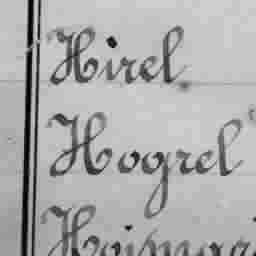 Hirel
Hogrel